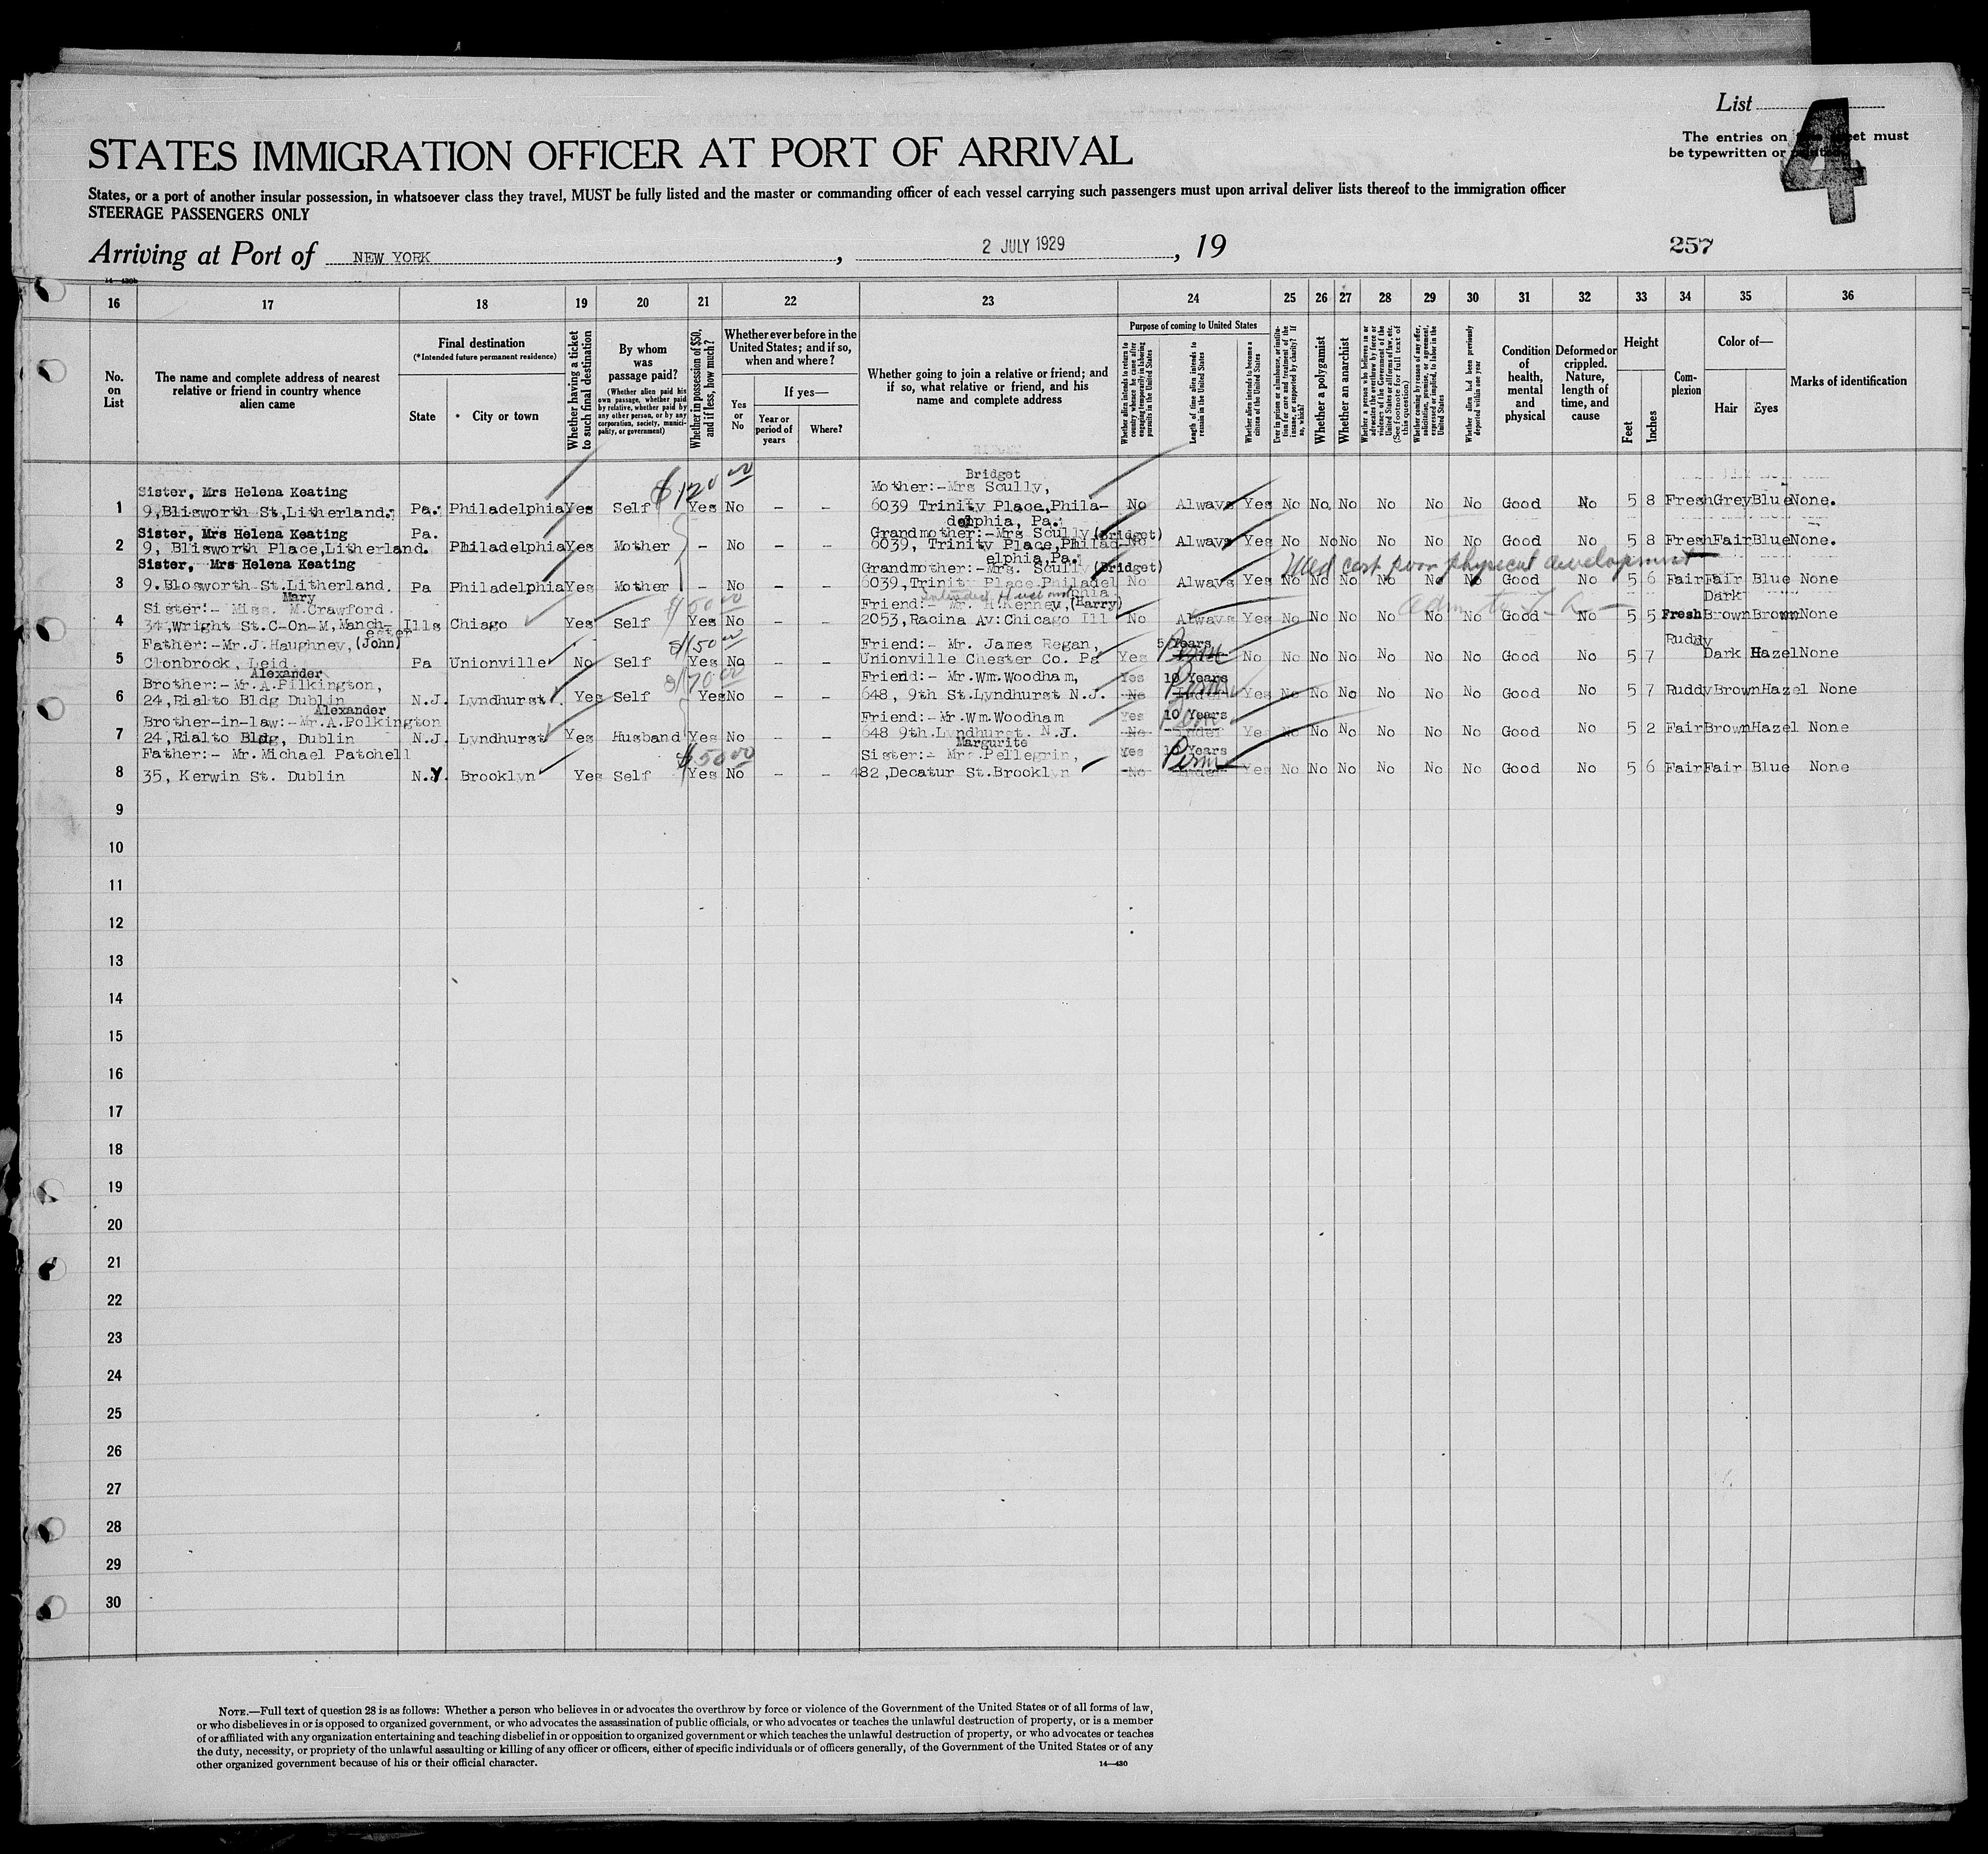 List
4
The entries on this sheet must
be typewritten or printed
STATES IMMIGRATION OFFICER AT PORT OF ARRIVAL
States, or a port of another insular possession, in whatsoever class they travel, MUST be fully listed and the master or commanding officer of each vessel carrying such passengers must upon arrival deliver lists thereof to the immigration officer
STEERAGE PASSENGERS ONLY
Arriving at Port of NEW YORK, 2 JULY 1929, 19
257
16 17 18 19 20 21 22 23 24 25 26 27 28 29 30 31 32 33 34 35 36
No. on List
The name and complete address of nearest relative or friend in country whence alien came
Final destination
(*Intended future permanent residence)
State
* City or town
Whether having a ticket to such final destination
By whom was passage paid?
(Whether alien paid his own passage, whether paid by relative, whether paid by any other person, or by any corporation, society, municipality, or government)
Whether in possession of $50, and if less, how much?
Whether ever before in the United States; and if so, when and where?
Yes or No
If yes—
Year or period of years
Where?
Whether going to join a relative or friend; and if so, what relative or friend, and his name and complete address
Purpose of coming to United States
Whether alien intends to return to country whence he came after engaging temporarily in laboring pursuits in the United States
Length of time alien intends to remain in the United States
Whether alien intends to become a citizen of the United States
Ever in prison or almshouse, or institution for care and treatment of the insane, or supported by charity? If so, which?
Whether a polygamist
Whether an anarchist
Whether a person who believes in or advocates the overthrow by force or violence of the Government of the United States or all forms of law, etc. (See footnote for full text of this question)
Whether coming by reason of any offer, solicitation, promise, or agreement, expressed or implied, to labor in the United States
Whether alien had been previously deported within one year
Condition of health, mental and physical
Deformed or crippled. Nature, length of time, and cause
Height
Feet
Inches
Complexion
Color of—
Hair
Eyes
Marks of identification
Bridget
Sister, Mrs Helena Keating $120 00 Mother:-Mrs Scully,
1 9,Blisworth St,Litherland. Pa. Philadelphia Yes Self Yes No - - 6039 Trinity Place,Phila- No Always Yes No No No No No No Good No 5 8 Fresh Grey Blue None.
delphia, Pa.
Sister, Mrs Helena Keating Pa. Grandmother:-Mrs Scully (Bridget)
2 9, Blisworth Place,Litherland. Philadelphia Yes Mother - No - - 6039, Trinity Place,Philad- No Always Yes No No No No No No Good No 5 8 Fresh Fair Blue None.
elphia,Pa.
Med cert poor physical development
Sister, Mrs Helena Keating Grandmother:-Mrs. Scully (Bridget)
3 9.Blosworth St.Litherland. Pa Philadelphia Yes Mother - No - - 6039,Trinity Place Philadel No Always Yes No No No No No No Good No 5 6 Fair Fair Blue None
phia
Mary intended Husband Dark
Sister:- Miss. M.Crawford. Friend:- Mr. H.Kenney, (Harry)
4 34,Wright St.C-On-M,Manch- Ills Chiago Yes Self Yes No - - 2053,Racina Av:Chicago Ill No Always Yes No No No No No No Good No 5 5 Fresh Brown Brown None
ester
Father:-Mr.J.Haughney, (John) $150 00 Friend:- Mr. James Regan, 5 Years Ruddy
5 Clonbrock, Leid. Pa Unionville No Self Yes No - - Unionville Chester Co. Pa Yes Perm No No No No No No No Good No 5 7 Dark Hazel None
Alexander
Brother:-Mr.A.Pilkington, $170 00 Friend:- Mr.Wm.Woodham, Yes 10 Years
6 24,Rialto Bldg Dublin N.J. Lyndhurst. Yes Self Yes No - - 648, 9th St.Lyndhurst N.J. No Perm Indef Yes No No No No No No Good No 5 7 Ruddy Brown Hazel None
Alexander
Brother-in-law:-Mr.A.Polkington Friend:-Mr.Wm.Woodham Yes 10 Years
7 24,Rialto Bldg, Dublin N.J. Lyndhurst Yes Husband Yes No - - 648 9th.Lyndhurst. N.J. No Perm Indef Ye No No No No No No Good No 5 2 Fair Brown Hazel None
Margurite
Father:- Mr.Michael Patchell $50 00 Sister:- Mrs.Pellegrin, Yes 10 Years
8 35, Kerwin St. Dublin N.Y. Brooklyn Yes Self Yes No - - 482,Decatur St.Brooklyn No Perm Indef Yes No No No No No No Good No 5 6 Fair Fair Blue None
9
10
11
12
13
14
15
16
17
18
19
20
21
22
23
24
25
26
27
28
29
30
NOTE.—Full text of question 28 is as follows: Whether a person who believes in or advocates the overthrow by force or violence of the Government of the United States or of all forms of law,
or who disbelieves in or is opposed to organized government, or who advocates the assassination of public officials, or who advocates or teaches the unlawful destruction of property, or is a member
of or affiliated with any organization entertaining and teaching disbelief in or opposition to organized government or which teaches the unlawful destruction of property, or who advocates or teaches
the duty, necessity, or propriety of the unlawful assaulting or killing of any officer or officers, either of specific individuals or of officers generally, of the Government of the United States or of any
other organized government because of his or their official character.
14—430